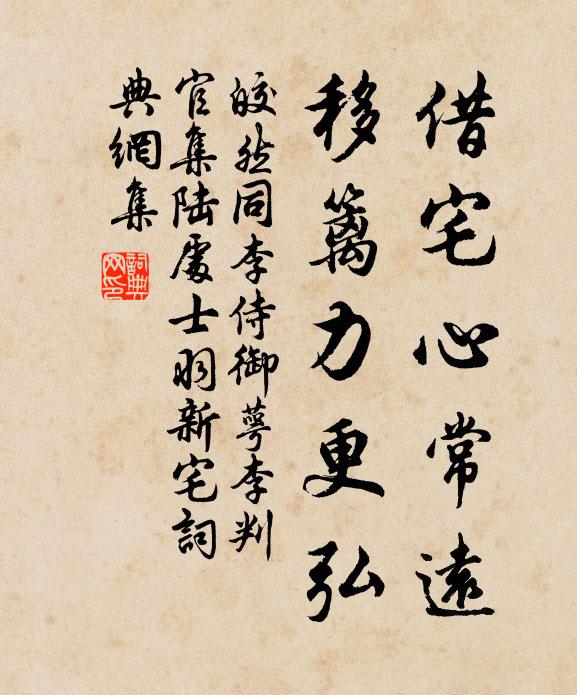 借宅心常遠
移篱力更弘
皎然同李侍御萼李判
官集陆處士羽新宅詞
典網集
詞典网印